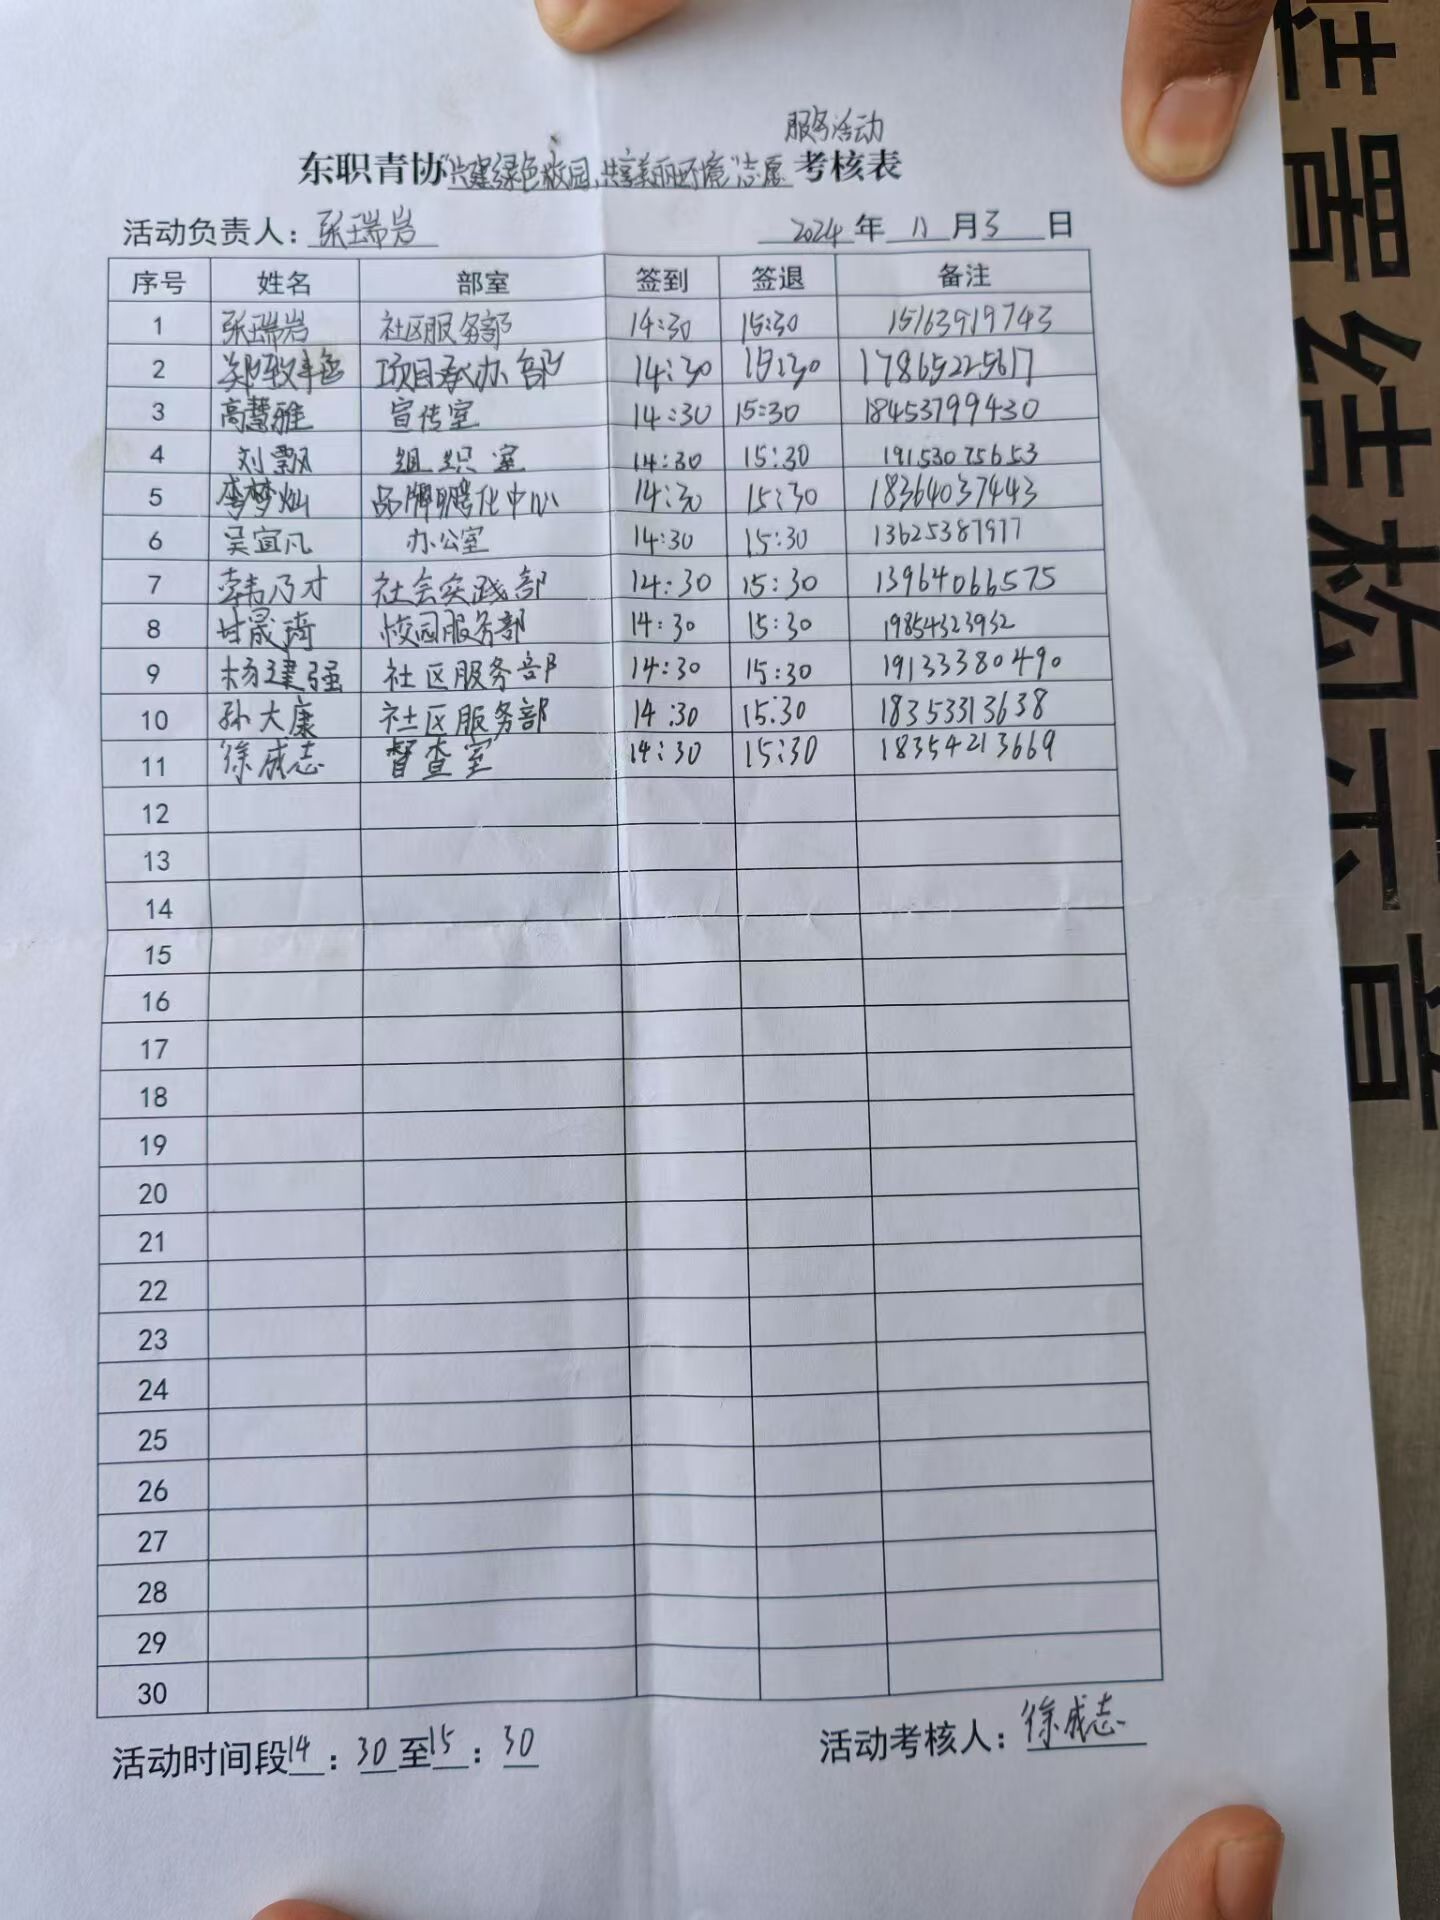 服务活动
东职青协“共建绿色校园、共享美丽环境”志愿考核表
活动负责人：张瑞岩 2024年11月3日
序号 姓名 部室 签到 签退 备注
1 张瑞岩 社区服务部 14:30 15:30 15163919743
2 郑致 项目承办部 14:30 15:30 17865225617
3 高慧雅 宣传室 14:30 15:30 18453799430
4 刘飘 组织室 14:30 15:30 19153075653
5 李梦灿 品牌孵化中心 14:30 15:30 18364037443
6 吴宜凡 办公室 14:30 15:30
7 韩乃才 社会实践部 14:30 15:30 13964066575
8 甘晟 校园服务部 14:30 15:30 19854323932
9 杨建强 社区服务部 14:30 15:30 19133380490
10 孙大康 社区服务部 14:30 15:30 18353313638
11 徐成志 督查室 14:30 15:30 18354213669
12
13
14
15
16
17
18
19
20
21
22
23
24
25
26
27
28
29
30
活动时间段14：30至15：30 活动考核人：徐成志